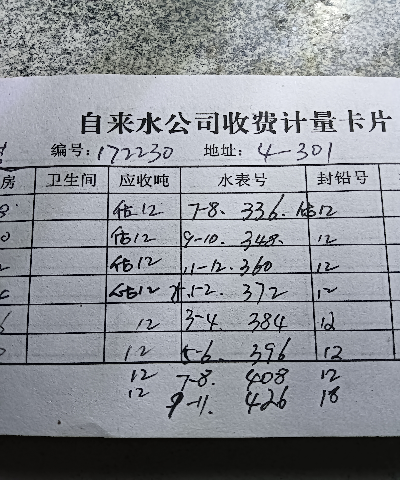 自来水公司收费计量卡片
编号: 172230 地址: 4-301
房 卫生间 应收吨 水表号 封铅号
估12 7-8. 336. 估12
估12 9-10. 348. 12
估12 11-12. 360 12
估12 1-2. 372 12
12 3-4. 384 12
12 5-6. 396 12
12 7-8. 408 12
12 9-11. 426 18